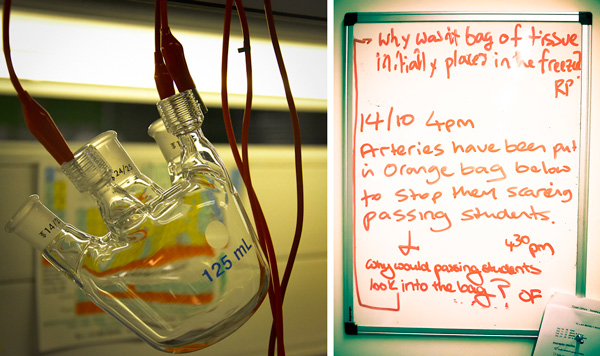 24/29
14/2
125 mL
why wasn't bag of tissue
initially places in the freezer
RP
14/10 4pm
Arteries have been put
in Orange bag below
to stop them scaring
passing students.
4:30 pm
Why would passing students
look into the bag?
OF